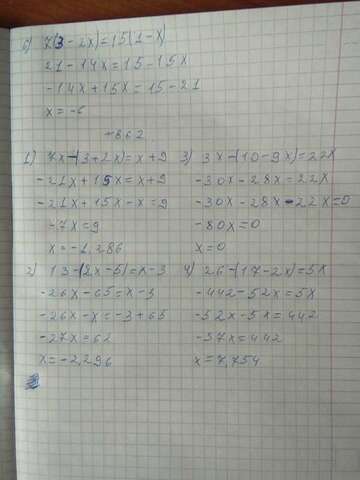 б) 7(3-2x)=15(1-x)
21-14x=15-15x
-14x+15x=15-21
x=-6
№862
1) 7x-(3+2x)=x+9
-21x+15x=x+9
-21x+15x-x=9
-7x=9
x=-1,286
2) 13-(2x-5)=x-3
-26x-65=x-3
-26x-x=-3+65
-27x=62
x=-2,296
3) 3x-(10-9x)=22x
-30x-28x=22x
-30x-28x-22x=0
-80x=0
x=0
4) 26-(17-2x)=5x
-442-52x=5x
-52x-5x=442
-57x=442
x=7,754